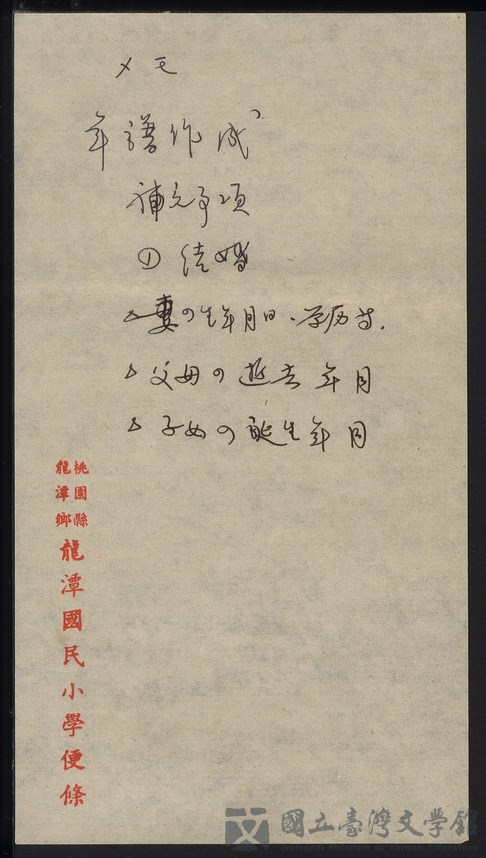 メモ
年譜作成
補充事項
① 结婚
△妻の生年月日・学历等.
△父母の逝去年月
△子女の誕生年月
桃園縣
龍潭鄉
龍潭國民小學便條
國立臺灣文學館